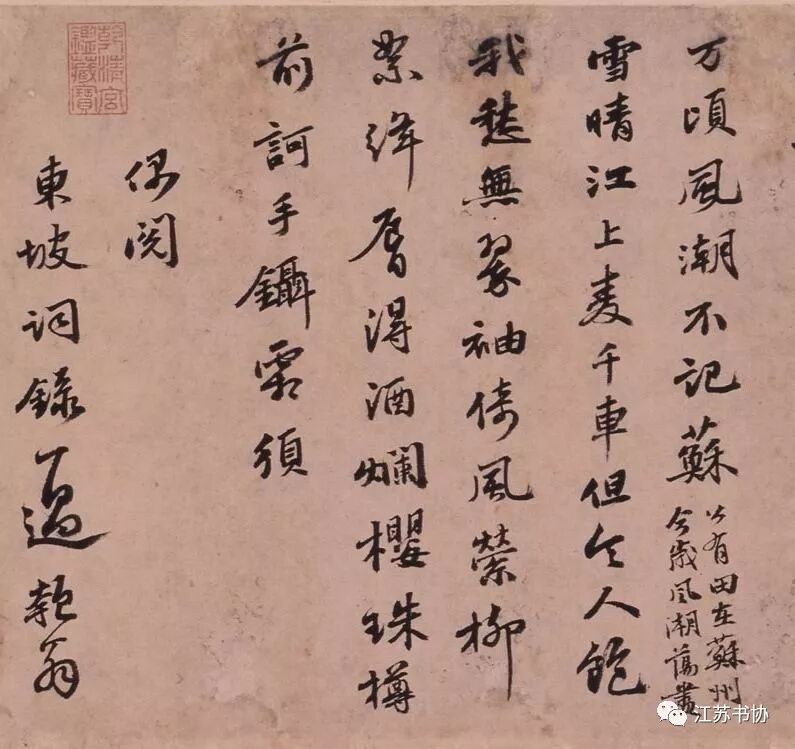 万頃風潮不記蘇
公有田在蘇州
今歲風潮蕩盡
雪晴江上麦千車但令人飽
我愁無翠袖倚風縈柳
絮絳唇得酒爛櫻珠樽
前訶手鑷霜須
偶閱
東坡詞錄過匏翁
乾清宮
鑑藏寶
江苏书协